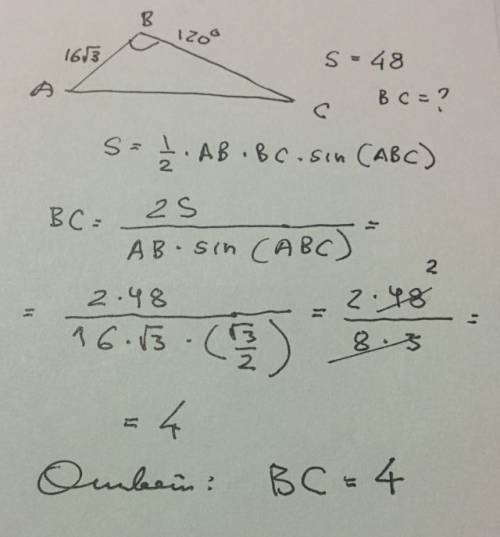 B
16√3
120°
A
C
S = 48
BC = ?
S = 1/2 · AB · BC · sin (ABC)
BC = 2S / AB · sin (ABC) =
= 2·48 / 16·√3·(√3/2) = 2·48 2 / 8·3 =
= 4
Ответ: BC = 4